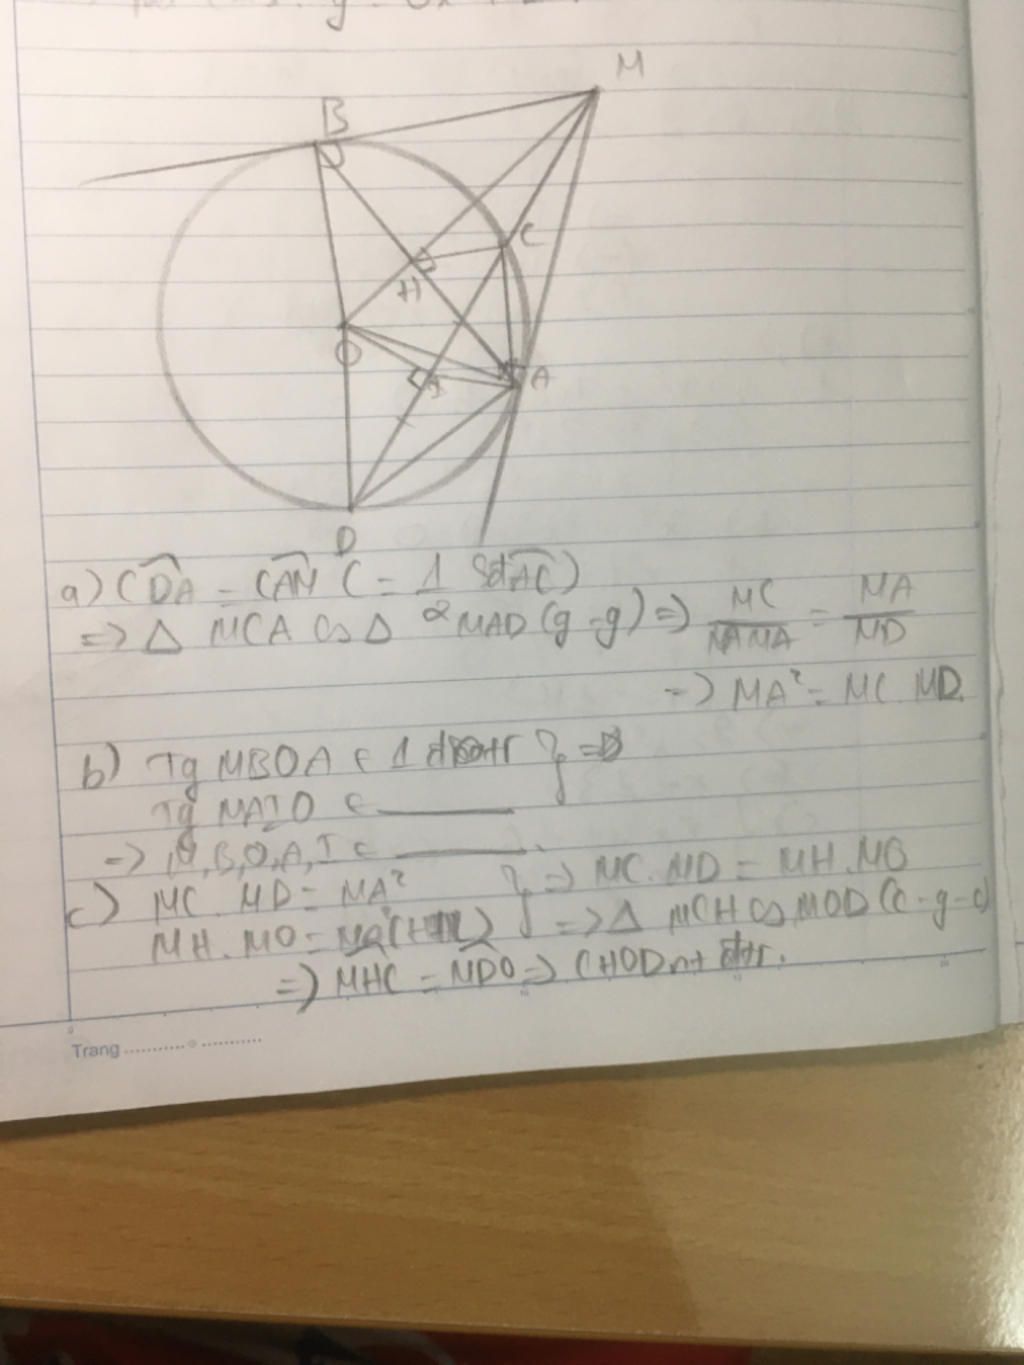 M
B
C
H
O
I
A
D
a) CDA = CAM (= 1/2 Sđ AC)
=> Δ MCA ∽ Δ MAD (g-g) => MC/MA = MA/MD
=> MA² = MC. MD
b) Tg MBOA ∈ 1 đtr } =>
Tg MAIO ∈ ———
=> M, B, O, A, I ∈ ———
c) MC. MD = MA² } => MC. MD = MH. MO
MH. MO = MA² (HTL) => Δ MCH ∽ MOD (c-g-c)
=> MHC = MDO => CHOD nt đtr.
Trang